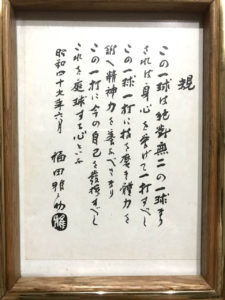 この一球は絶對無二の一球なり
されば身心を擧げて一打すべし
この一球一打に技を磨き體力を
鍛へ精神力を養ふべきなり
この一打に今の自己を發揮すべし
これを庭球する心といふ
昭和四十 年六月 福田雅之助